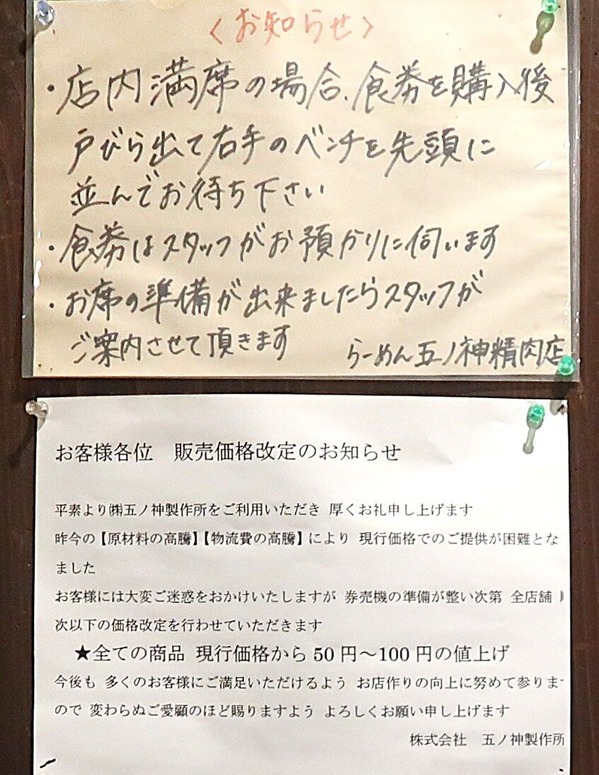 〈お知らせ〉
・店内満席の場合、食券を購入後
戸びら出て右手のベンチを先頭に
並んでお待ち下さい
・食券はスタッフがお預かりに伺います
・お席の準備が出来ましたらスタッフが
ご案内させて頂きます
らーめん五ノ神精肉店
お客様各位 販売価格改定のお知らせ
平素より㈱五ノ神製作所をご利用いただき 厚くお礼申し上げます
昨今の【原材料の高騰】【物流費の高騰】により 現行価格でのご提供が困難とな
ました
お客様には大変ご迷惑をおかけいたしますが 券売機の準備が整い次第 全店舗
次以下の価格改定を行わせていただきます
★全ての商品 現行価格から 50 円～100 円の値上げ
今後も 多くのお客様にご満足いただけるよう お店作りの向上に努めて参りま
ので 変わらぬご愛顧のほど賜りますよう よろしくお願い申し上げます
株式会社 五ノ神製作所